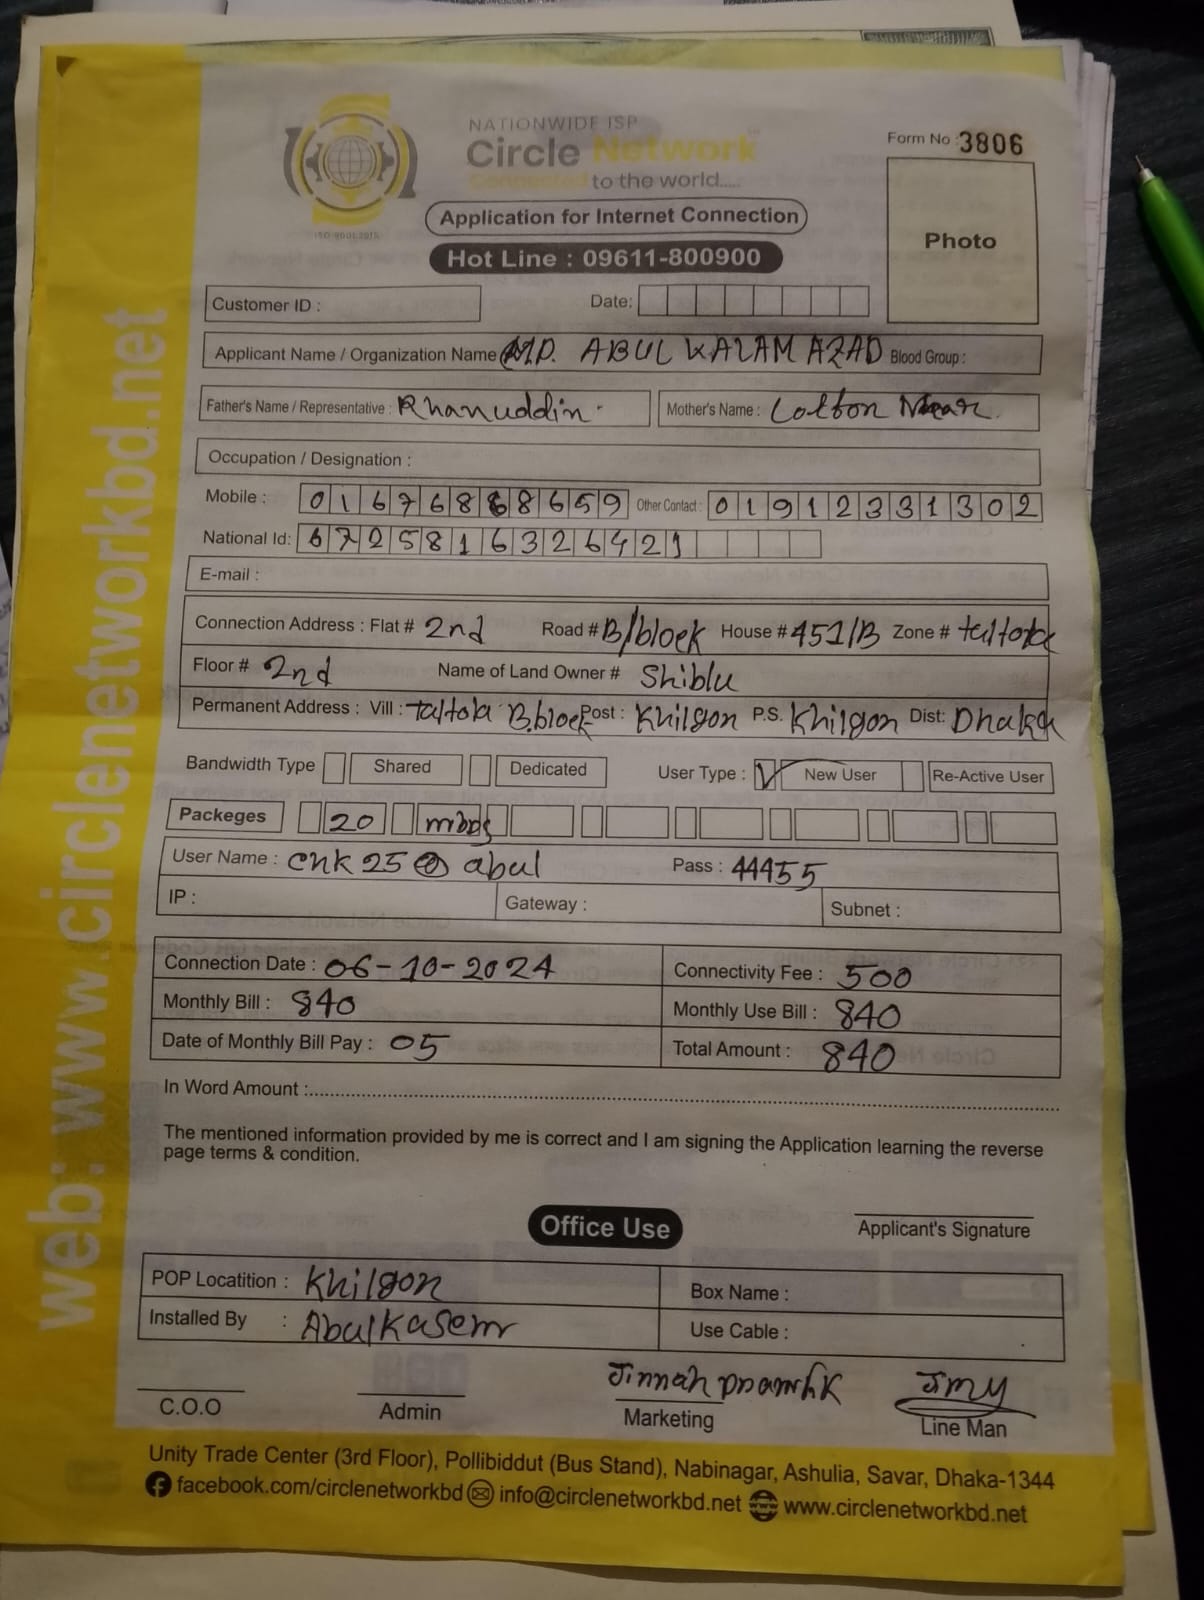 NATIONWIDE ISP
Circle Network
Connected to the world.....
ISO 9001:2015
Form No : 3806
Photo
Application for Internet Connection
Hot Line : 09611-800900
Customer ID :
Date:
Applicant Name / Organization Name MD. ABUL KALAM AZAD Blood Group :
Father's Name / Representative : Rhanuddin. Mother's Name : Lotton
Occupation / Designation :
Mobile : 01676868659 Other Contact : 01912331302
National Id: 6725816326421
E-mail :
Connection Address : Flat # 2nd Road # B/block House # 451/B Zone # taltola
Floor # 2nd Name of Land Owner # Shiblu
Permanent Address : Vill : taltola B.block Post : Khilgon P.S. Khilgon Dist: Dhaka
Bandwidth Type Shared Dedicated User Type : New User Re-Active User
Packeges 20 mbps
User Name : cnk25@abul Pass : 44455
IP : Gateway : Subnet :
Connection Date : 06-10-2024 Connectivity Fee : 500
Monthly Bill : 840 Monthly Use Bill : 840
Date of Monthly Bill Pay : 05 Total Amount : 840
In Word Amount :
The mentioned information provided by me is correct and I am signing the Application learning the reverse
page terms & condition.
Office Use
Applicant's Signature
POP Locatition : Khilgon Box Name :
Installed By : Abulkasem Use Cable :
Jinnah
C.O.O Admin Marketing Line Man
Unity Trade Center (3rd Floor), Pollibiddut (Bus Stand), Nabinagar, Ashulia, Savar, Dhaka-1344
facebook.com/circlenetworkbd info@circlenetworkbd.net www.circlenetworkbd.net
web: www.circlenetworkbd.net